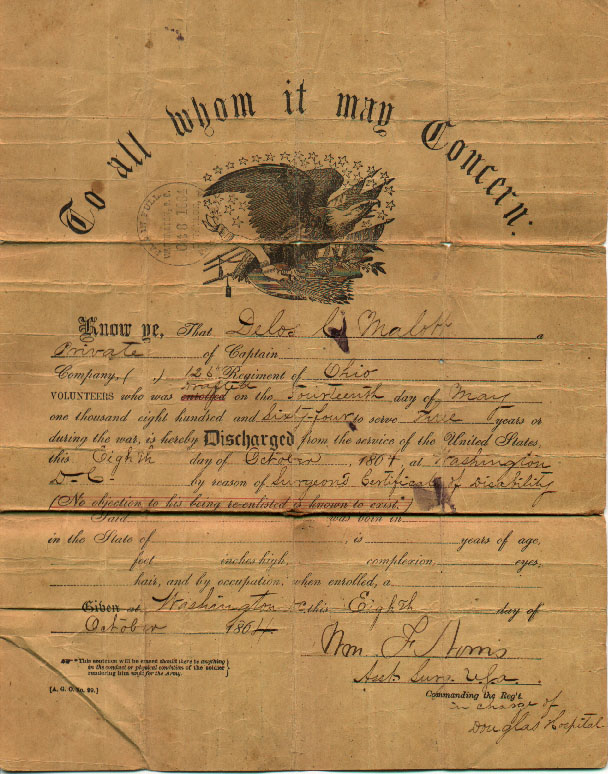 To all whom it may Concern:
Know ye, That Delos C Malott a
Private of Captain
Company, ( ) 126 Regiment of Ohio
VOLUNTEERS who was enrolled on the Fourteenth day of May
one thousand eight hundred and Sixty-four to serve Three years or
during the war, is hereby Discharged from the service of the United States,
this Eighth day of October 1864, at Washington
D. C. by reason of Surgeon's Certificate of Disability
(No objection to his being re-enlisted is known to exist.)
Said was born in
in the State of , is years of age,
feet inches high, complexion, eyes,
hair, and by occupation, when enrolled, a
Given at Washington this Eighth day of
October 1864
Wm. F. Norris
Asst. Surg. U.S.A.
Commanding the Reg't
in charge of
Douglas Hospital
*This sentence will be erased should there be anything
in the conduct or physical condition of the soldier
rendering him unfit for the Army.
[A. G. O. No. 99.]